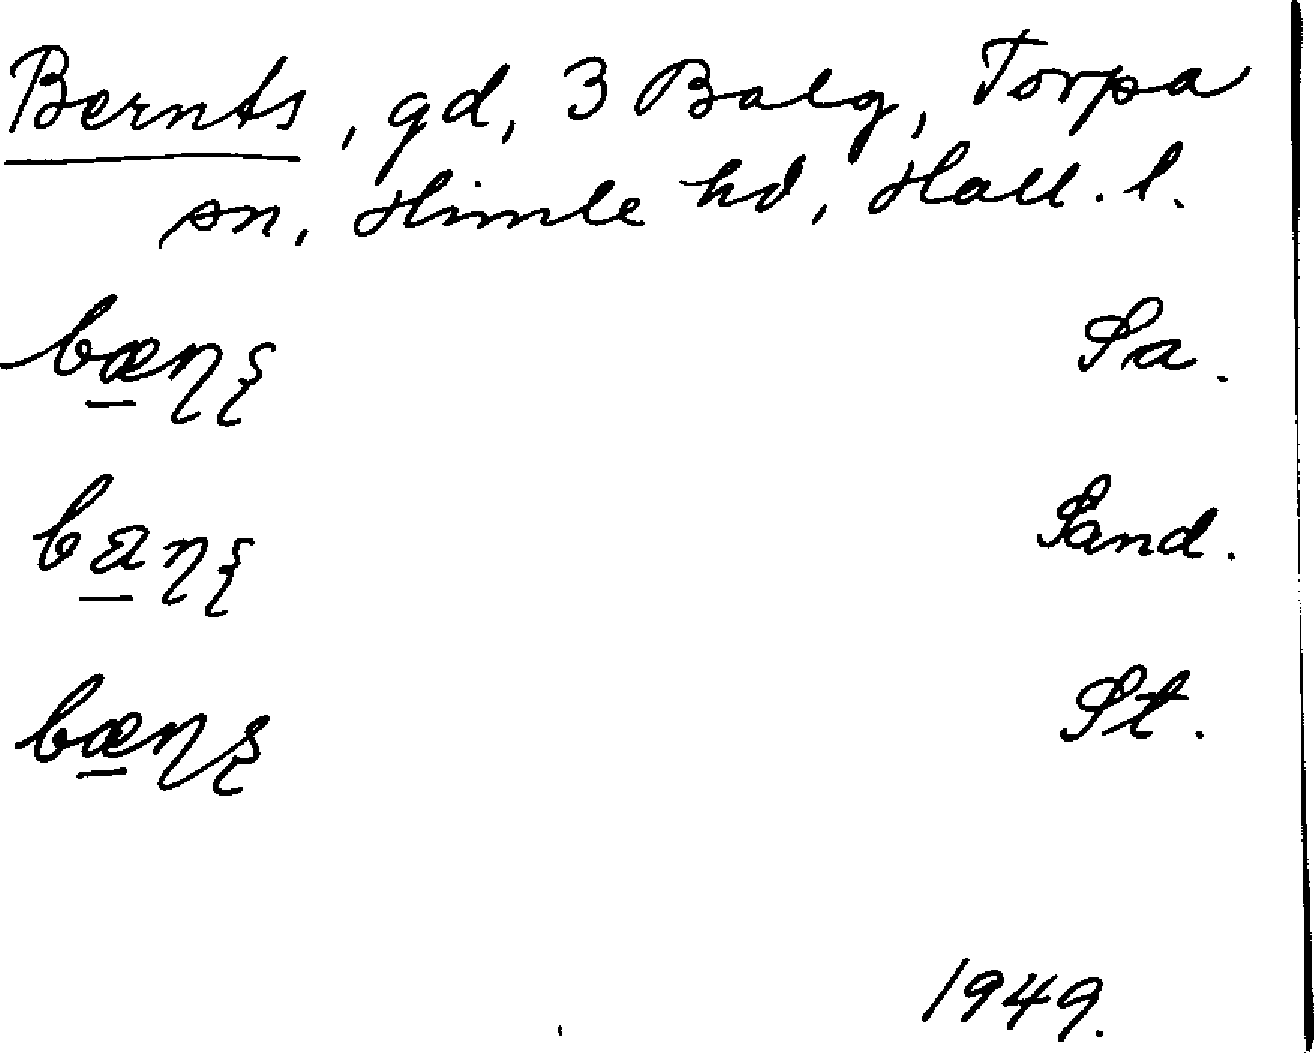 Bernts, gd, 3 Balg, Torpa
sn, Himle hd, Hall. l.
bæɳʂ Sa.
baɳʂ Sand.
bæɳʂ St.
1949.